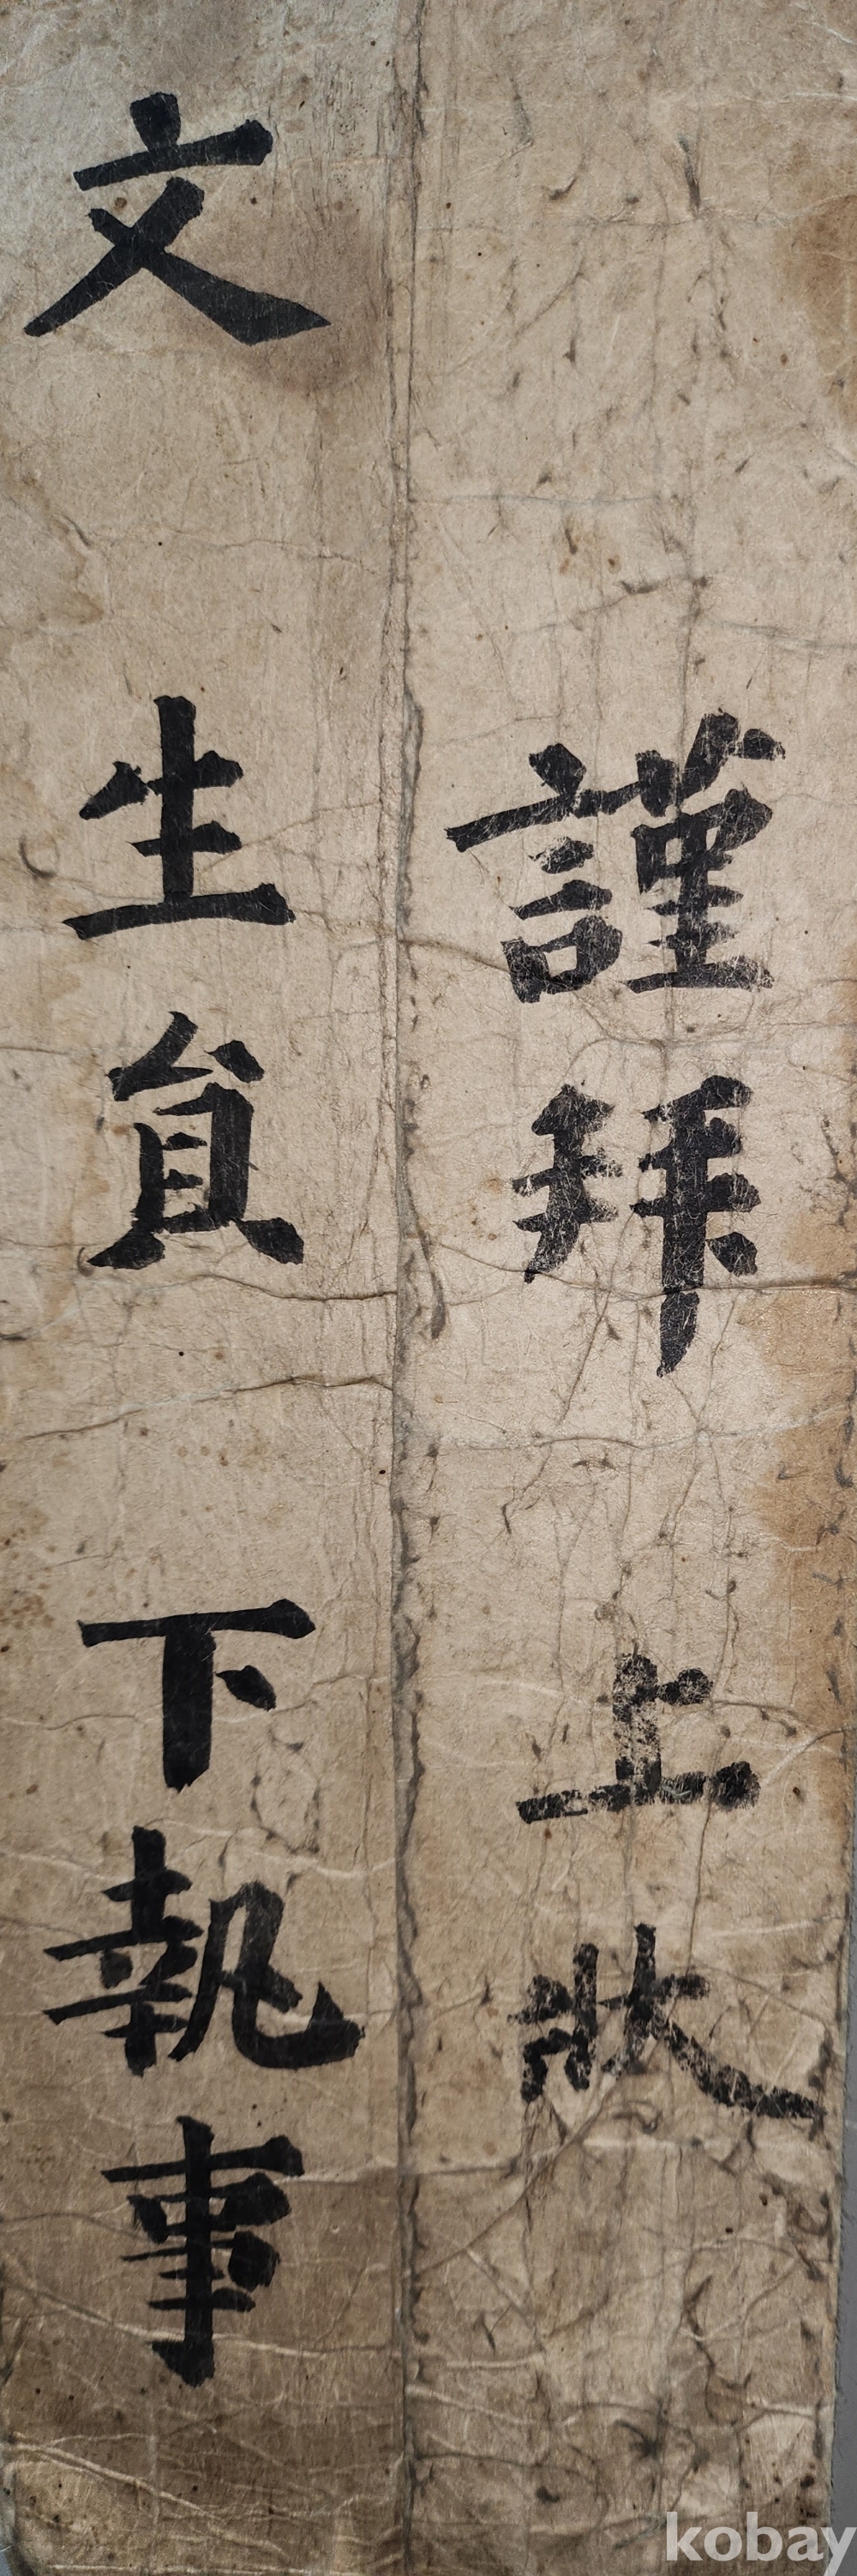 謹拜 上狀
文 生員 下執事
kobay